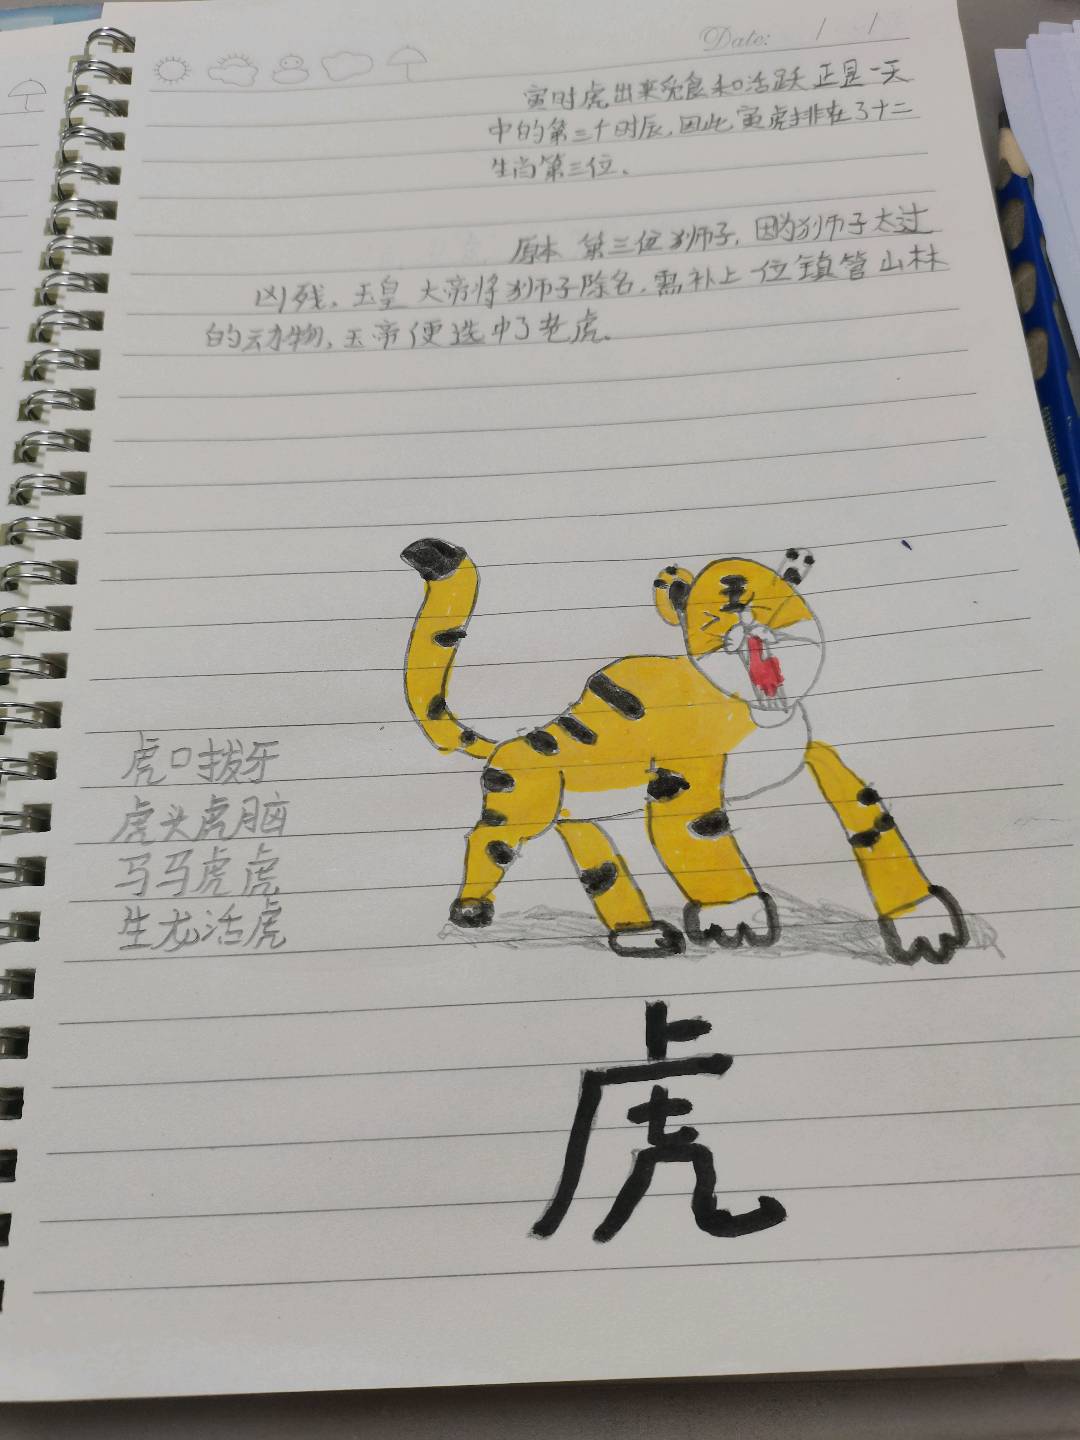 Date: / /
寅时虎出来觅食和活跃正是一天
中的第三个时辰,因此寅虎排在了十二
生肖第三位.
原本 第三位狮子,因为狮子太过
凶残,玉皇大帝将狮子除名,需补上一位镇管山林
的动物,玉帝便选中了老虎.
王
虎口拔牙
虎头虎脑
马马虎虎
生龙活虎
虎